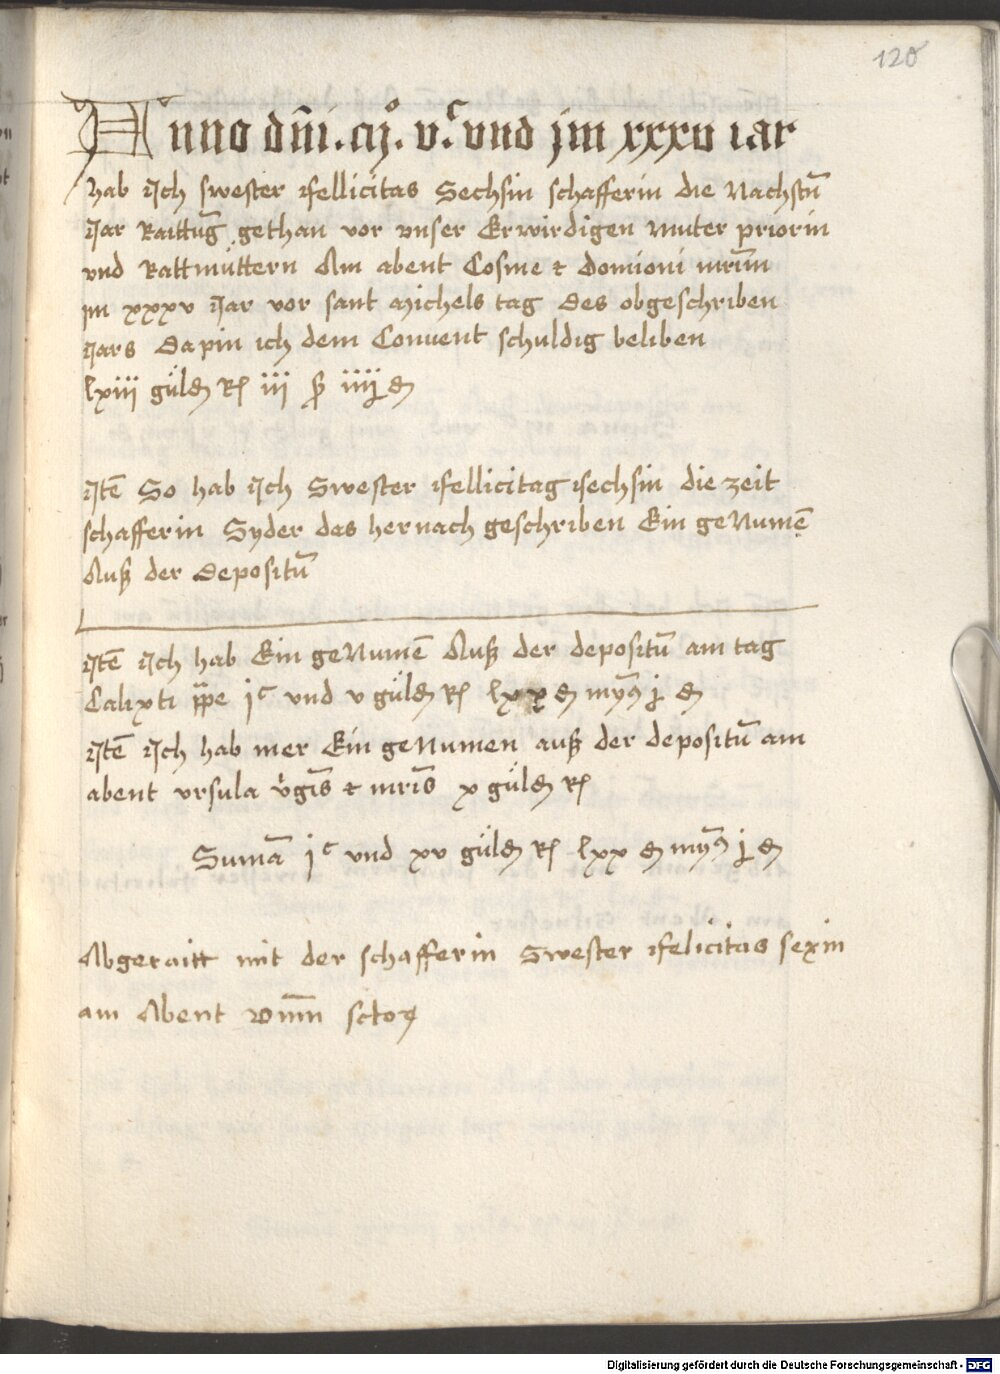 120
Anno dm̄. cıȷ̊. vᶜ vnd jm xxxv iar
hab Ich swester ffellicitas Sechsin schafferin die Nachstū
Jar Raittūg gethan vor vnser Erwirdigen muter priorin
vnd Rattmüttern Am abent Cosme et domioni mrūm
im xxxv Jar vor sant Michels tag Des obgeschriben
Jars Dapin ich dem Conuent schuldig beliben
lxiii güld R iii
Itē So hab Ich Swester ffellicitag sechsin die zeit
schafferin Syder das hernach geschriben Ein geNumē
Auß der Depositū
Itē Ich hab Ein geNumē Auß der depositū am tag
Calixti pp̄e jᶜ vnd v güld R lxx
Itē Ich hab mer Ein geNumen auß der depositū am
abent vrsula v̄gīs et mrīs x güld R
Sumā jᶜ vnd xv güld R lxx
Abgeraitt mit der schafferin Swester ffelicitas sexin
am Abent om̄n sctoꝝ
Digitalisierung gefördert durch die Deutsche Forschungsgemeinschaft - DFG